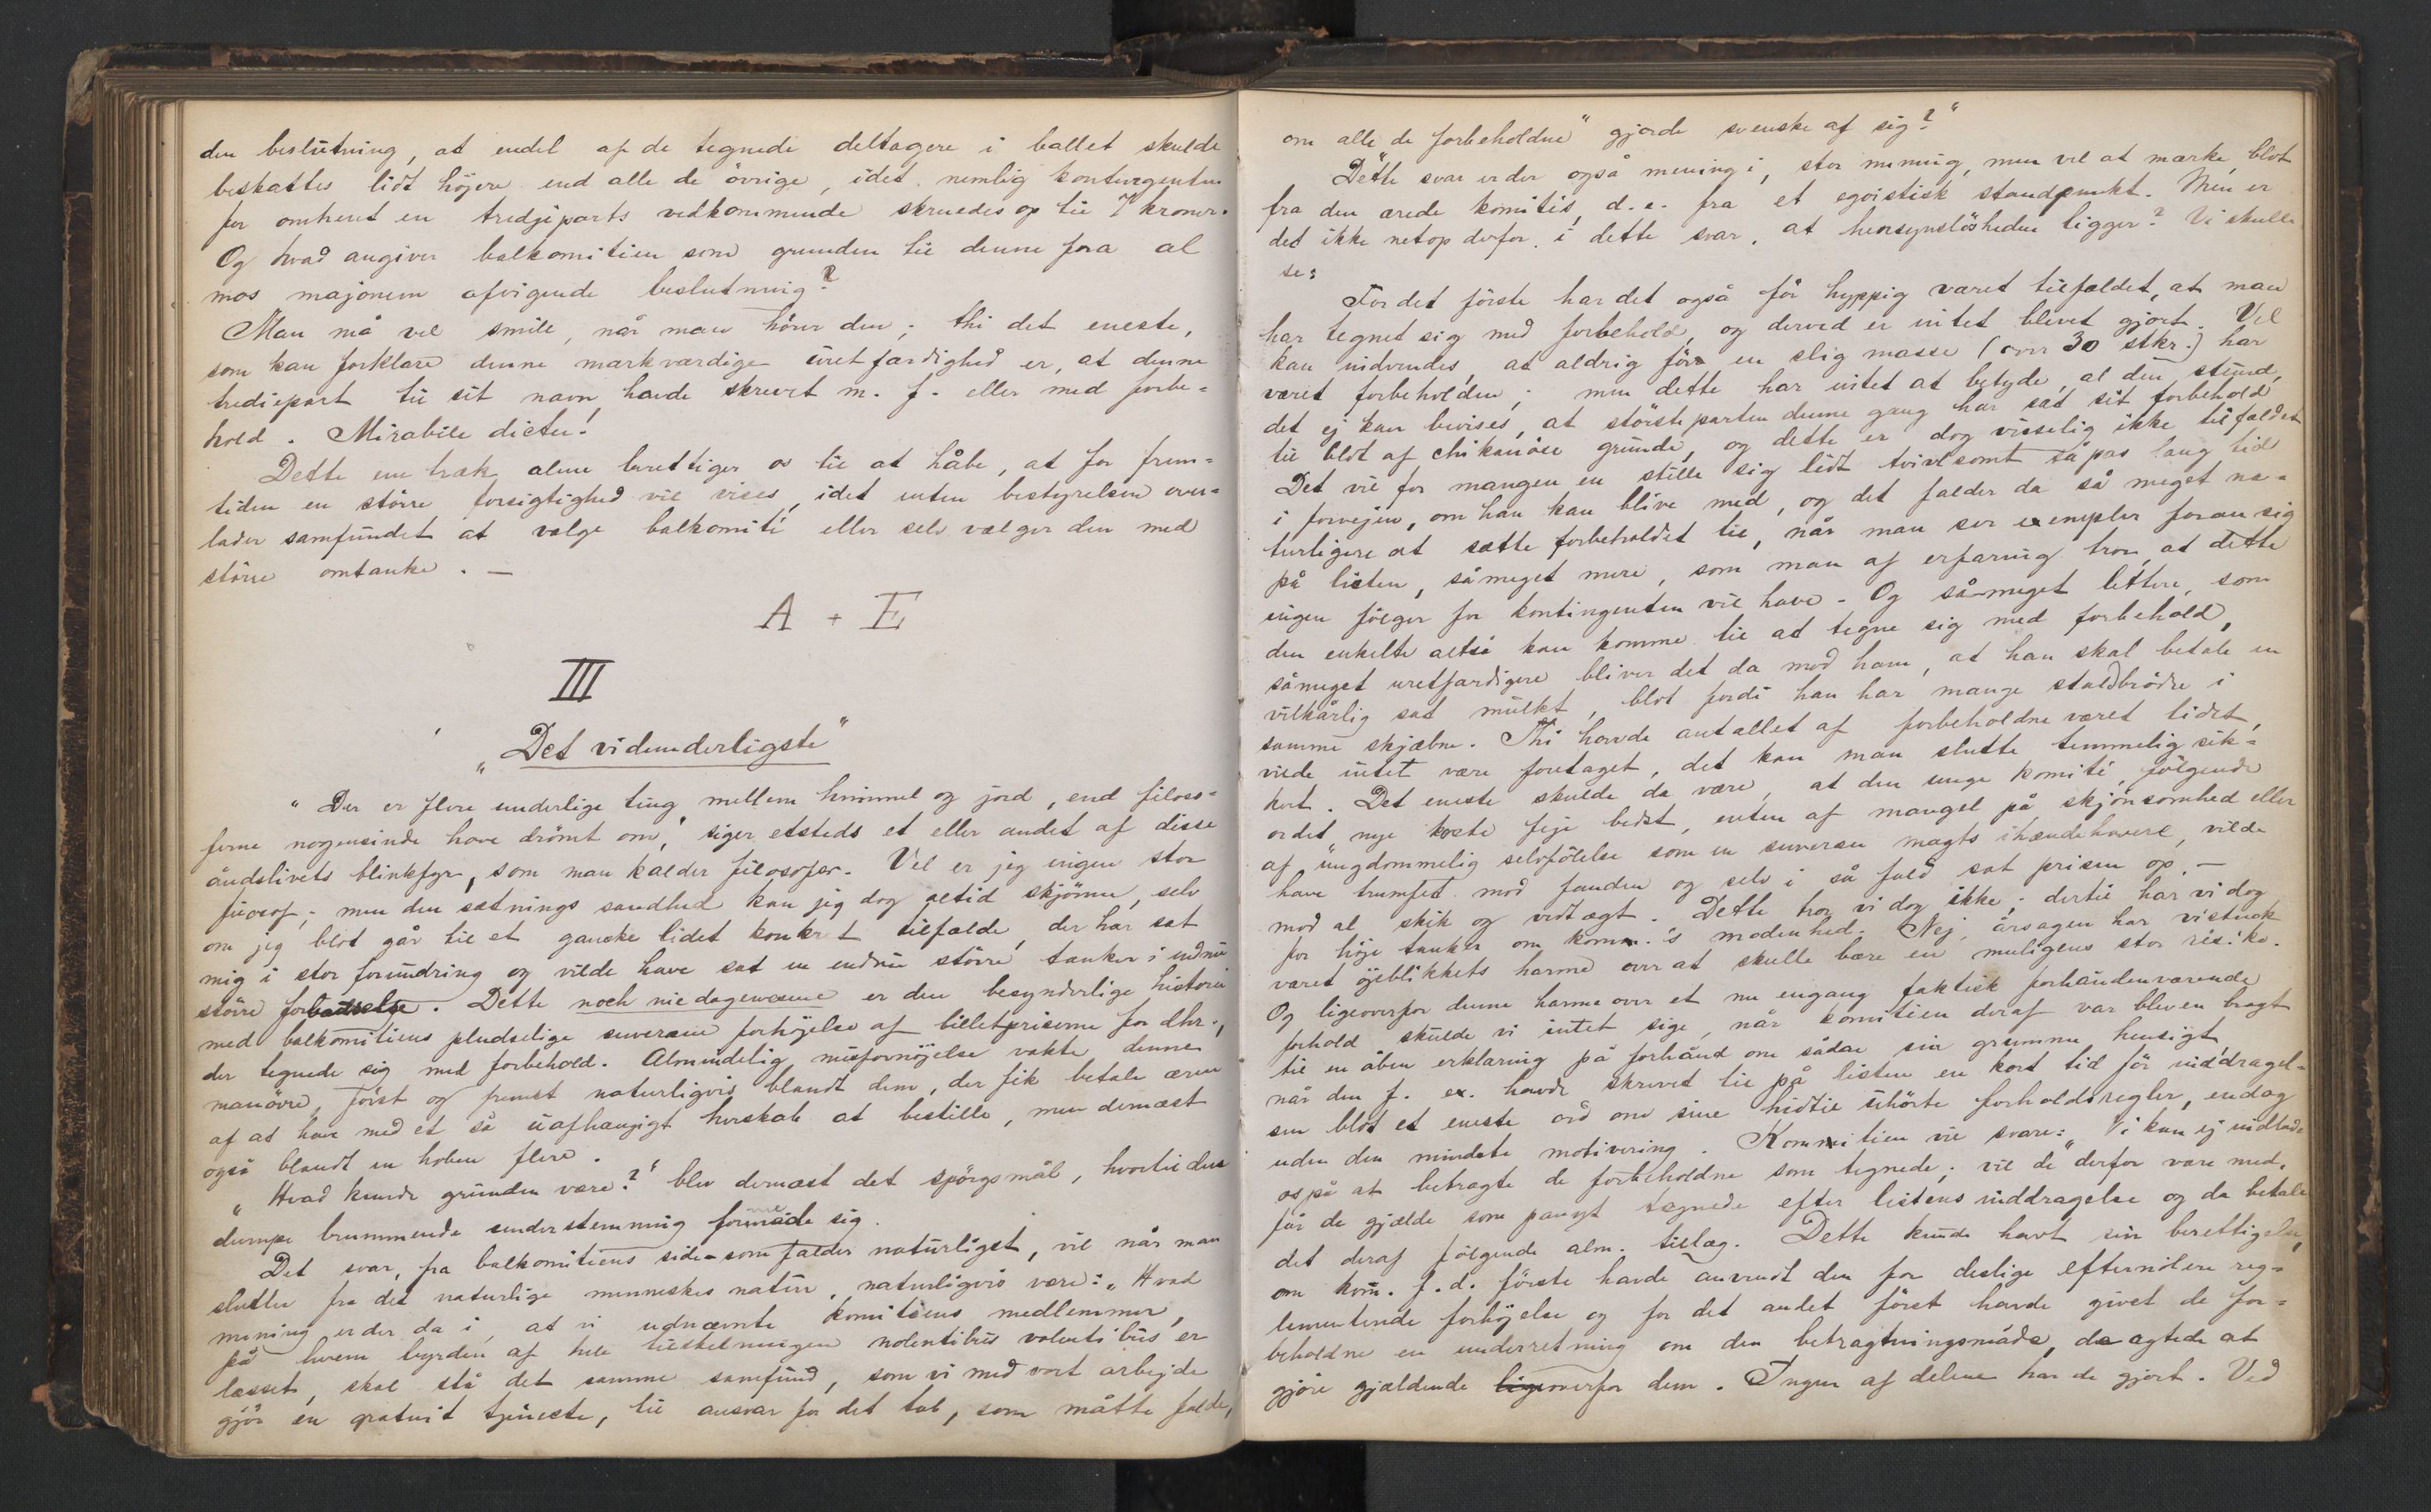 den beslutning, at endel af de tegnede deltagere i ballet skulde
beskattes lidt højere end alle de øvrige, idet nemlig kontingenten
for omtrent en tredjeparts vedkommende skruedes op til 7 kroner.
Og hvad angiver balkomitien som grunden til denne fra al
mos majorum afvigende beslutning?
Man må vel smile, når man hører den; thi det eneste,
som kan forklare denne mærkværdige uretfærdighed er, at denne
trediepart til sit navn havde skrevet m. f. eller med forbe=
hold. Mirabile dictu!
Dette ene træk alene berettiger os til at håbe, at for frem=
tiden en större forsigtighed vil vises, idet enten bestyrelsen over=
lader samfundet at vælge balkomité eller selv vælger den med
större omtanke. —
A + E
III
„Det vidunderligste"
"Der er flere underlige ting mellem himmel og jord, end filoso=
ferne nogensinde have drömt om," siger etsteds et eller andet af disse
åndslivets blinkfyr, som man kalder filosofer. Vel er jeg ingen stor
filosof; men den sætnings sandhed kan jeg dog altid skjönne, selv
om jeg blot går til et ganske lidet konkret tilfælde, der har sat
mig i stor forundring og vilde have sat en endnu större tænker i endnu
större forbauselse. Dette noch nie dagewesene er den besynderlige historie
med balkomitiens pludselige suveræne forhöjelse af billetpriserne for dhr.,
der tegnede sig med forbehold. Almindelig misfornöjelse vakte denne
manövre, först og fremst naturligvis blandt dem, der fik betale æren
af at have med et så uafhængigt herskab at bestille, men dernæst
også blandt en hoben flere.
„Hvad kunde grunden være?" blev dernæst det spörgsmål, hvortil den
dumpe brummende understemning formede sig.
Det svar, fra balkomitiens side som falder naturligst, vil når man
slutter fra det naturlige menneskes natur, naturligvis være: „Hvad
mening er der da i, at vi udnævnte komitéens medlemmer,
på hvem byrden af hele tilstelningen nolentibus volentibus er
læsset, skal stå det samme samfund, som vi med vort arbejde
gjör en gratuit tjeneste, til ansvar for det tab, som måtte falde,
om alle de forbeholdne" gjorde svenske af sig?"
Dette svar er der også mening i, stor mening, men vel at mærke, blot
fra den ærede komités, d. e. fra et egoistisk standpunkt. Men er
det ikke netop derfor, i dette svar, at hensynslösheden ligger? Vi skulle
se:
For det förste har det også för hyppig været tilfældet, at man
har tegnet sig med forbehold, og derved er intet blevet gjort. Vel
kan indvendes, at aldrig för en slig masse (over 30 stkr.) har
været forbeholden; men dette har intet at betyde, al den stund,
det ej kan bevises, at störsteparten denne gang har sat sit forbehold
til blot af chikanöse grunde, og dette er dog visselig ikke tilfældet
Det vil for mangen en stille sig lidt tvivlsomt såpas lang tid
i forvejen, om han kan blive med, og det falder da så meget na=
turligere at sætte forbeholdet til, når man ser exempler foran sig
på listen, såmeget mere, som man af erfaring tror, at dette
ingen fölger for kontingenten vil have. Og såmeget lettere, som
den enkelte altså kan komme til at tegne sig med forbehold,
såmeget uretfærdigere bliver det da mod ham, at han skal betale en
vilkårlig sat mulkt, blot fordi han har mange staldbrödre i
samme skjæbne. Thi havde antallet af forbeholdne været lidet,
vilde intet være foretaget, det kan man slutte temmelig sik=
kert. Det eneste skulde da være, at den unge komité, fölgende
ordet nye koste feje bedst, enten af mangel på skjönsomhed eller
af ungdommelig selvfölelse som en suveræn magts ihændehavere, vilde
have trumfet mod fanden og selv i så fald sat prisen op —
mod al skik og vedtægt. Dette tror vi dog ikke; dertil har vi dog
for höje tanker om komm.'s modenhed. Nej, årsagen har vistnok
været öjeblikkets harme over at skulle bære en muligens stor risiko.
Og ligeoverfor denne harme over et nu engang faktisk forhåndenværende
forhold skulde vi intet sige, når komitien deraf var bleven bragt
til en åben erklæring på forhånd om sådan sin grumme hensigt,
når den f. ex. havde skrevet til på listen en kort tid för inddragel=
sen blot et eneste ord om sine hidtil uhörte forholdsregler, endog
uden den mindste motivering. Kommitien vil svare: „Vi kan ej indlade
os på at betragte de forbeholdne som tegnede; vil de derfor være med,
får de gjælde som paanyt tegnede efter listens inddragelse og da betale
det deraf fölgende alm. tillæg. Dette kunde havt sin berettigelse,
om kom. f. d. förste havde anvendt den for deslige efternölere reg=
lementende forhöjelse og for det andet först havde givet de for=
beholdne en underretning om den betragtningsmåde, de agtede at
gjöre gjældende ligeoverfor dem. Ingen af delene har de gjort. Ved